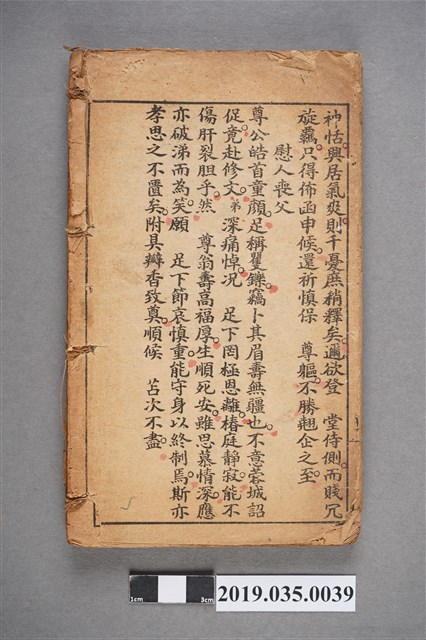 神恬興居氣爽則千憂庶稍釋矣邇欲登　堂侍側而賤冗
旋羈只得佈函申候還祈慎保　尊軀不勝翹企之至
慰人喪父
尊公皓首童顏足稱矍鑠竊卜其眉壽無疆也不意蓉城詔
促竟赴修文弟深痛悼况　足下罔極恩離椿庭靜寂能不
傷肝裂胆乎然　尊翁壽高福厚生順死安雖思慕情深應
亦破涕而為笑願　足下節哀慎重能守身以終制焉斯亦
孝思之不匱矣附具瓣香致奠順候　苫次不盡
1cm
3cm
2019.035.0039